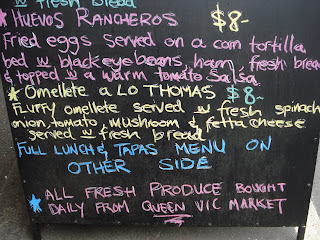 w fresh bread
★ HUEVOS RANCHEROS $8-
Fried eggs served on a corn tortilla
bed w blackeyebeans, ham, fresh bread
& topped w a warm tomato salsa
★ Omellete a LO THOMAS $8-
Fluffy omellete served w fresh spinach
onion, tomato, mushroom & fetta cheese
served w fresh bread
FULL LUNCH & TAPAS MENU ON
OTHER SIDE
★ ALL FRESH PRODUCE BOUGHT
DAILY FROM QUEEN VIC MARKET